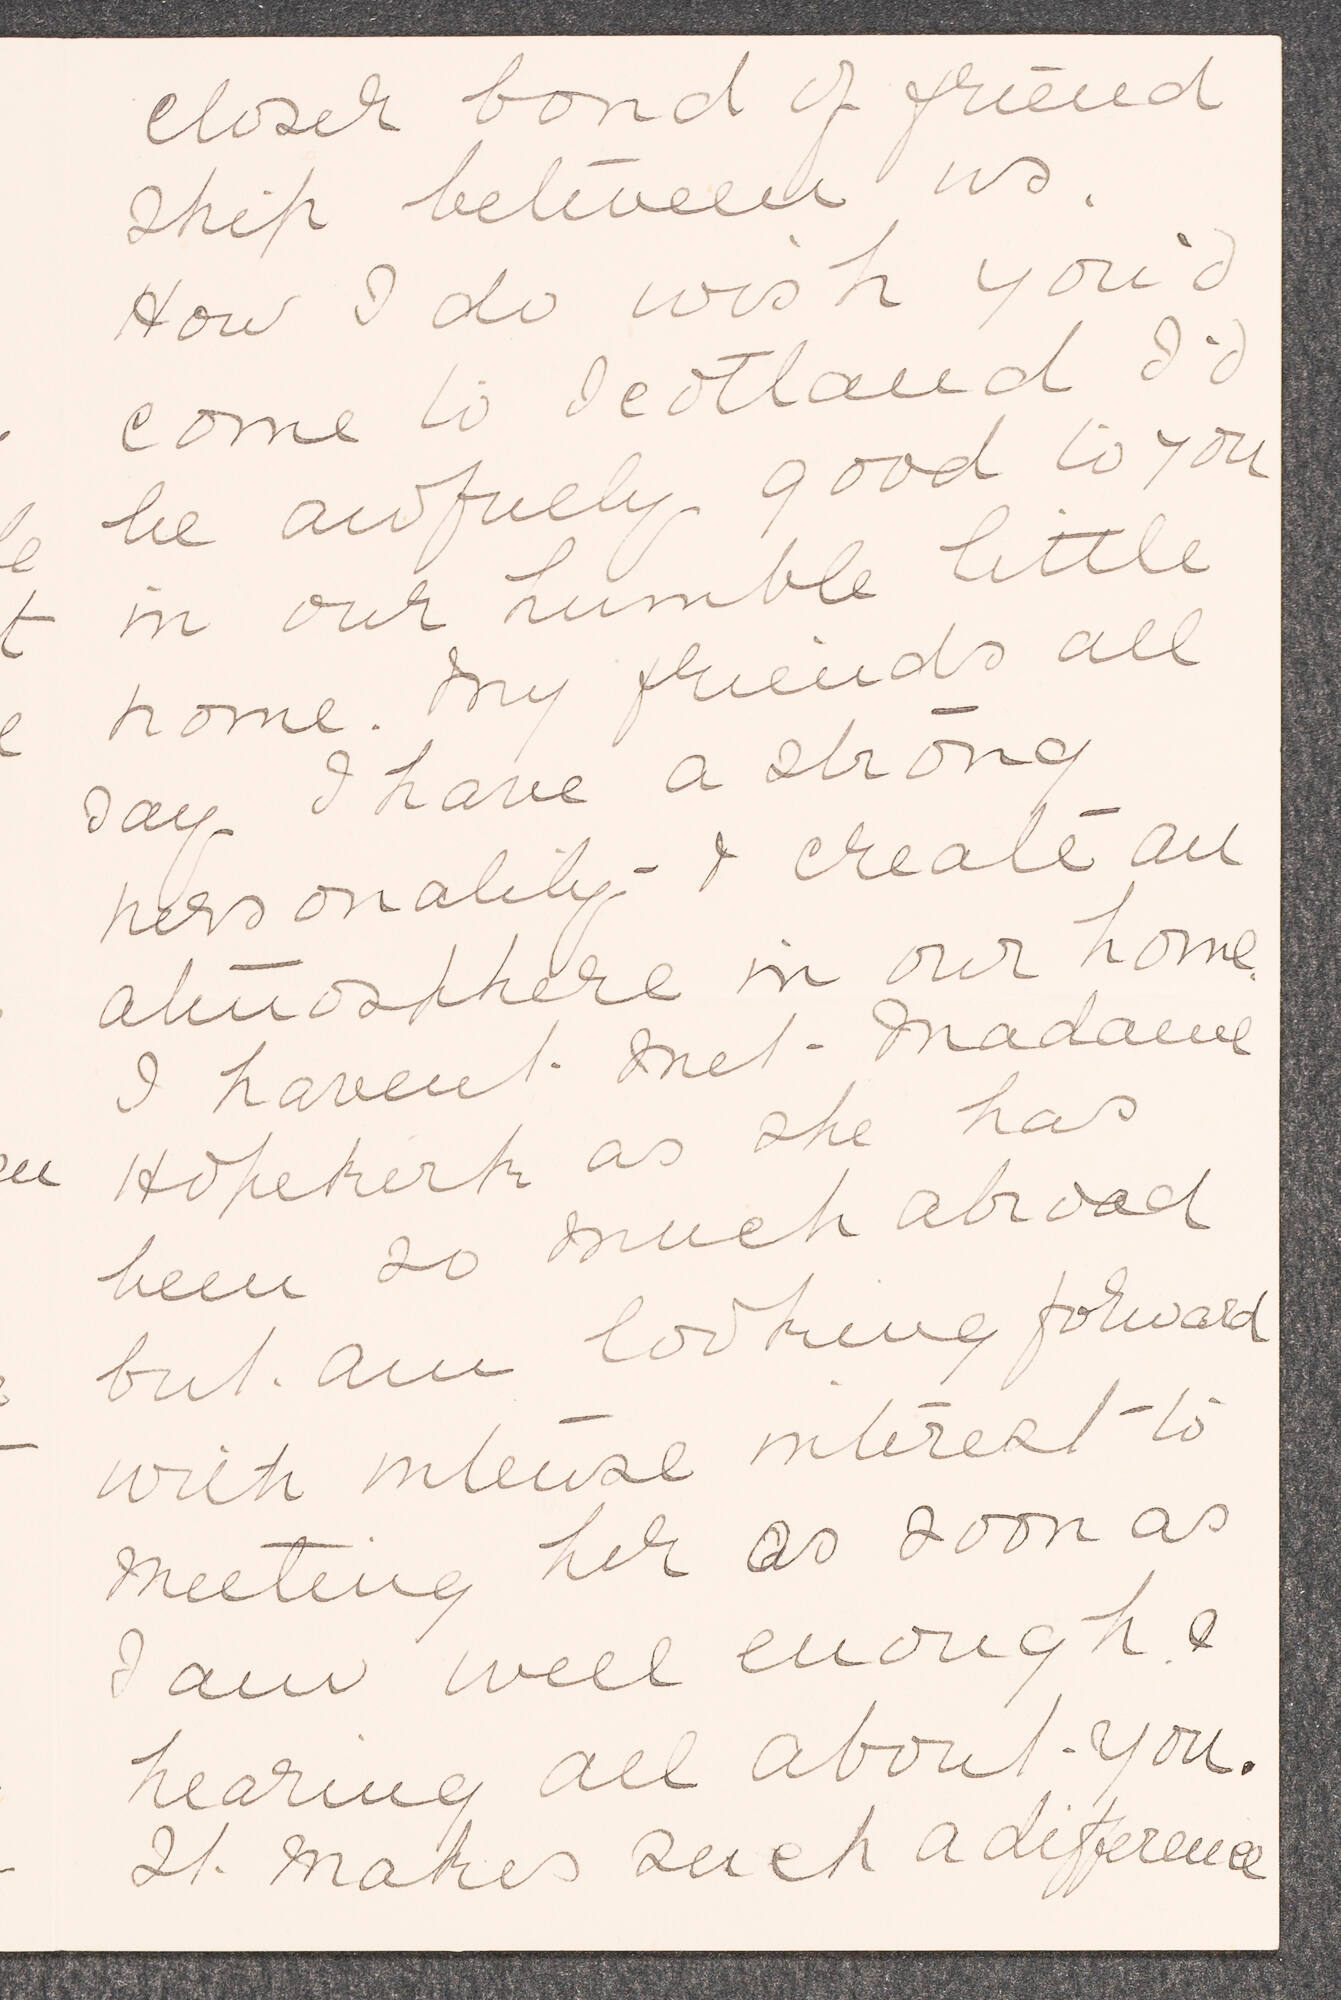 closer bond of friend
ship between us.
How I do wish you'd
come to Scotland I'd
be awfully good to you
in our humble little
home. My friends all
say I have a strong
personality - & create an
atmosphere in our home.
I havent met - Madame
Hopekirk as she has
been so much abroad
but am looking forward
with intense interest - to
meeting her as soon as
I am well enough &
hearing all about - you.
It makes such a difference